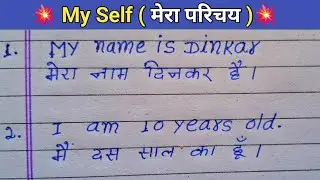 My Self ( मेरा परिचय )
1. MY name is DINKAR
मेरा नाम दिनकर है ।
2. I am 10 years old.
मैं दस साल का हूँ ।